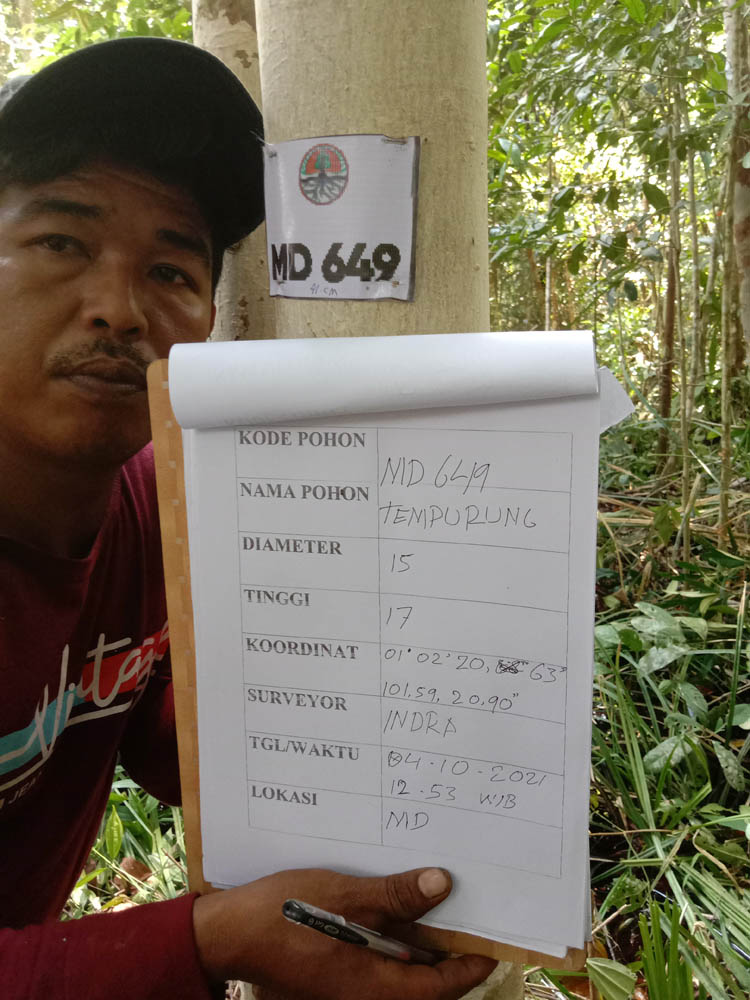 MD 649
41 cm
KODE POHON MD 649
NAMA POHON TEMPURUNG
DIAMETER 15
TINGGI 17
KOORDINAT 01° 02' 20, 63"
101,59, 20,90"
SURVEYOR INDRA
TGL/WAKTU 04-10-2021
12.53 WIB
LOKASI MD